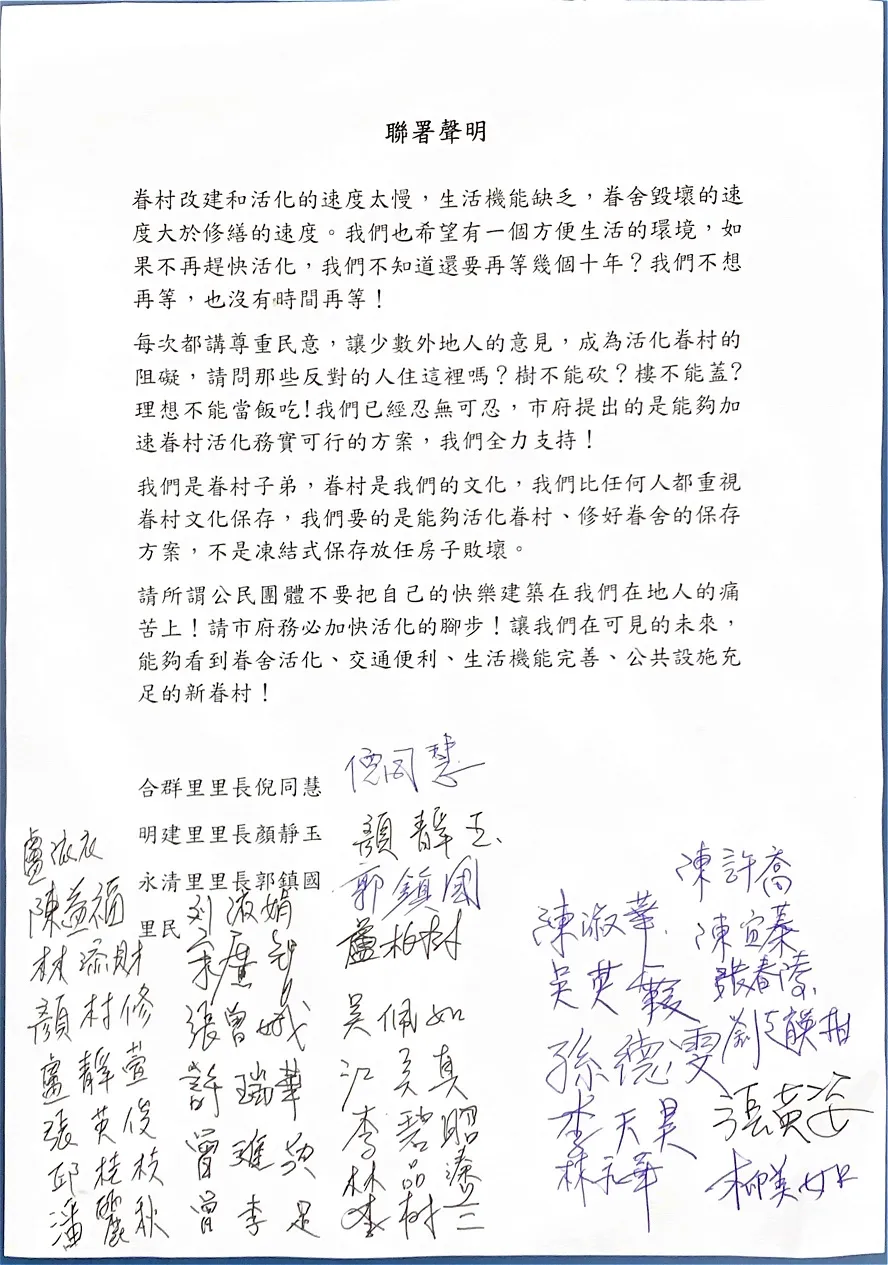 聯署聲明
眷村改建和活化的速度太慢，生活機能缺乏，眷舍毀壞的速
度大於修繕的速度。我們也希望有一個方便生活的環境，如
果不再趕快活化，我們不知道還要再等幾個十年？我們不想
再等，也沒有時間再等！
每次都講尊重民意，讓少數外地人的意見，成為活化眷村的
阻礙，請問那些反對的人住這裡嗎？樹不能砍？樓不能蓋？
理想不能當飯吃！我們已經忍無可忍，市府提出的是能夠加
速眷村活化務實可行的方案，我們全力支持！
我們是眷村子弟，眷村是我們的文化，我們比任何人都重視
眷村文化保存，我們要的是能夠活化眷村、修好眷舍的保存
方案，不是凍結式保存放任房子敗壞。
請所謂公民團體不要把自己的快樂建築在我們在地人的痛
苦上！請市府務必加快活化的腳步！讓我們在可見的未來，
能夠看到眷舍活化、交通便利、生活機能完善、公共設施充
足的新眷村！
合群里里長倪同慧
倪同慧
明建里里長顏靜玉
顏靜玉
永清里里長郭鎮國
郭鎮國
里民
盧淑衣
陳益福
林添財
顏村修
盧靜萱
張英俊
邱桂枝
潘麗秋
劉淑娟
張曾城
許瑞華
曾李足
盧柏樹
吳佩如
江美真
李碧昭
林品溱
李樹蘭
陳淑華
吳英
孫德雯
李天昊
林永華
陳許喬
陳宜蓁
張春隆
張黃姿
柳美如